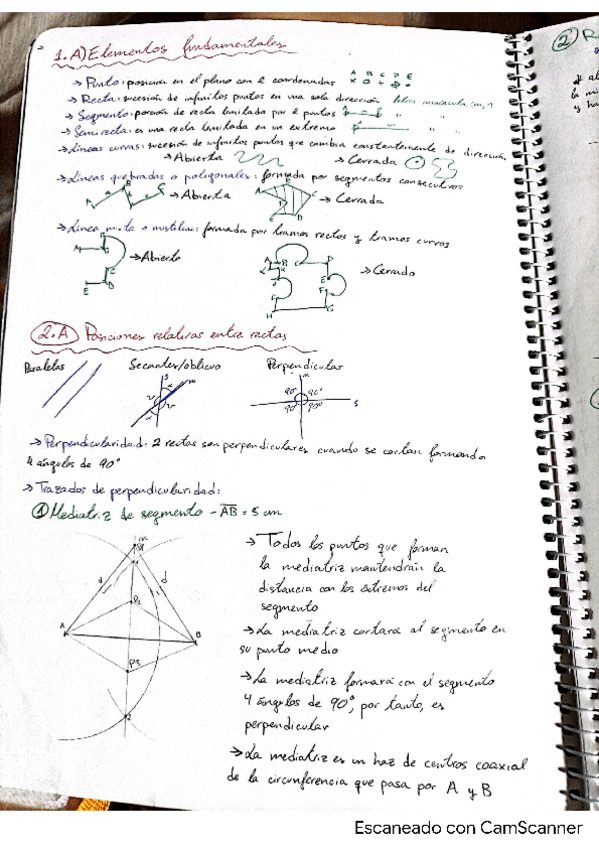 1.A) Elementos fundamentales
→ Punto: posición en el plano con 2 coordenadas A B C D E
→ Recta: sucesión de infinitos puntos en una sola dirección letra minúscula (m, n)
→ Segmento: porción de recta limitada por 2 puntos " "
→ Semirecta: es una recta limitada en un extremo " "
→ Líneas curvas: sucesión de infinitos puntos que cambia constantemente de dirección
→ Abierta → Cerrada
→ Líneas quebradas o poligonales: formada por segmentos consecutivos
→ Abierta → Cerrada
→ Línea mixta o mistilínea: formada por tramos rectos y tramos curvos
→ Abierto → Cerrado
2.A Posiciones relativas entre rectas
Paralelas Secantes/oblicuo Perpendicular
90° 90°
90° 90° s
→ Perpendicularidad: 2 rectas son perpendiculares cuando se cortan formando
4 ángulos de 90°
→ Trazados de perpendicularidad:
① Mediatriz de segmento - AB = 5 cm
→ Todos los puntos que forman
la mediatriz mantendrán la
distancia con los extremos del
segmento
→ La mediatriz cortará al segmento en
su punto medio
→ La mediatriz formará con el segmento
4 ángulos de 90°, por tanto, es
perpendicular
→ La mediatriz es un haz de centros coaxial
de la circunferencia que pasa por A y B
A B
d d
Escaneado con CamScanner